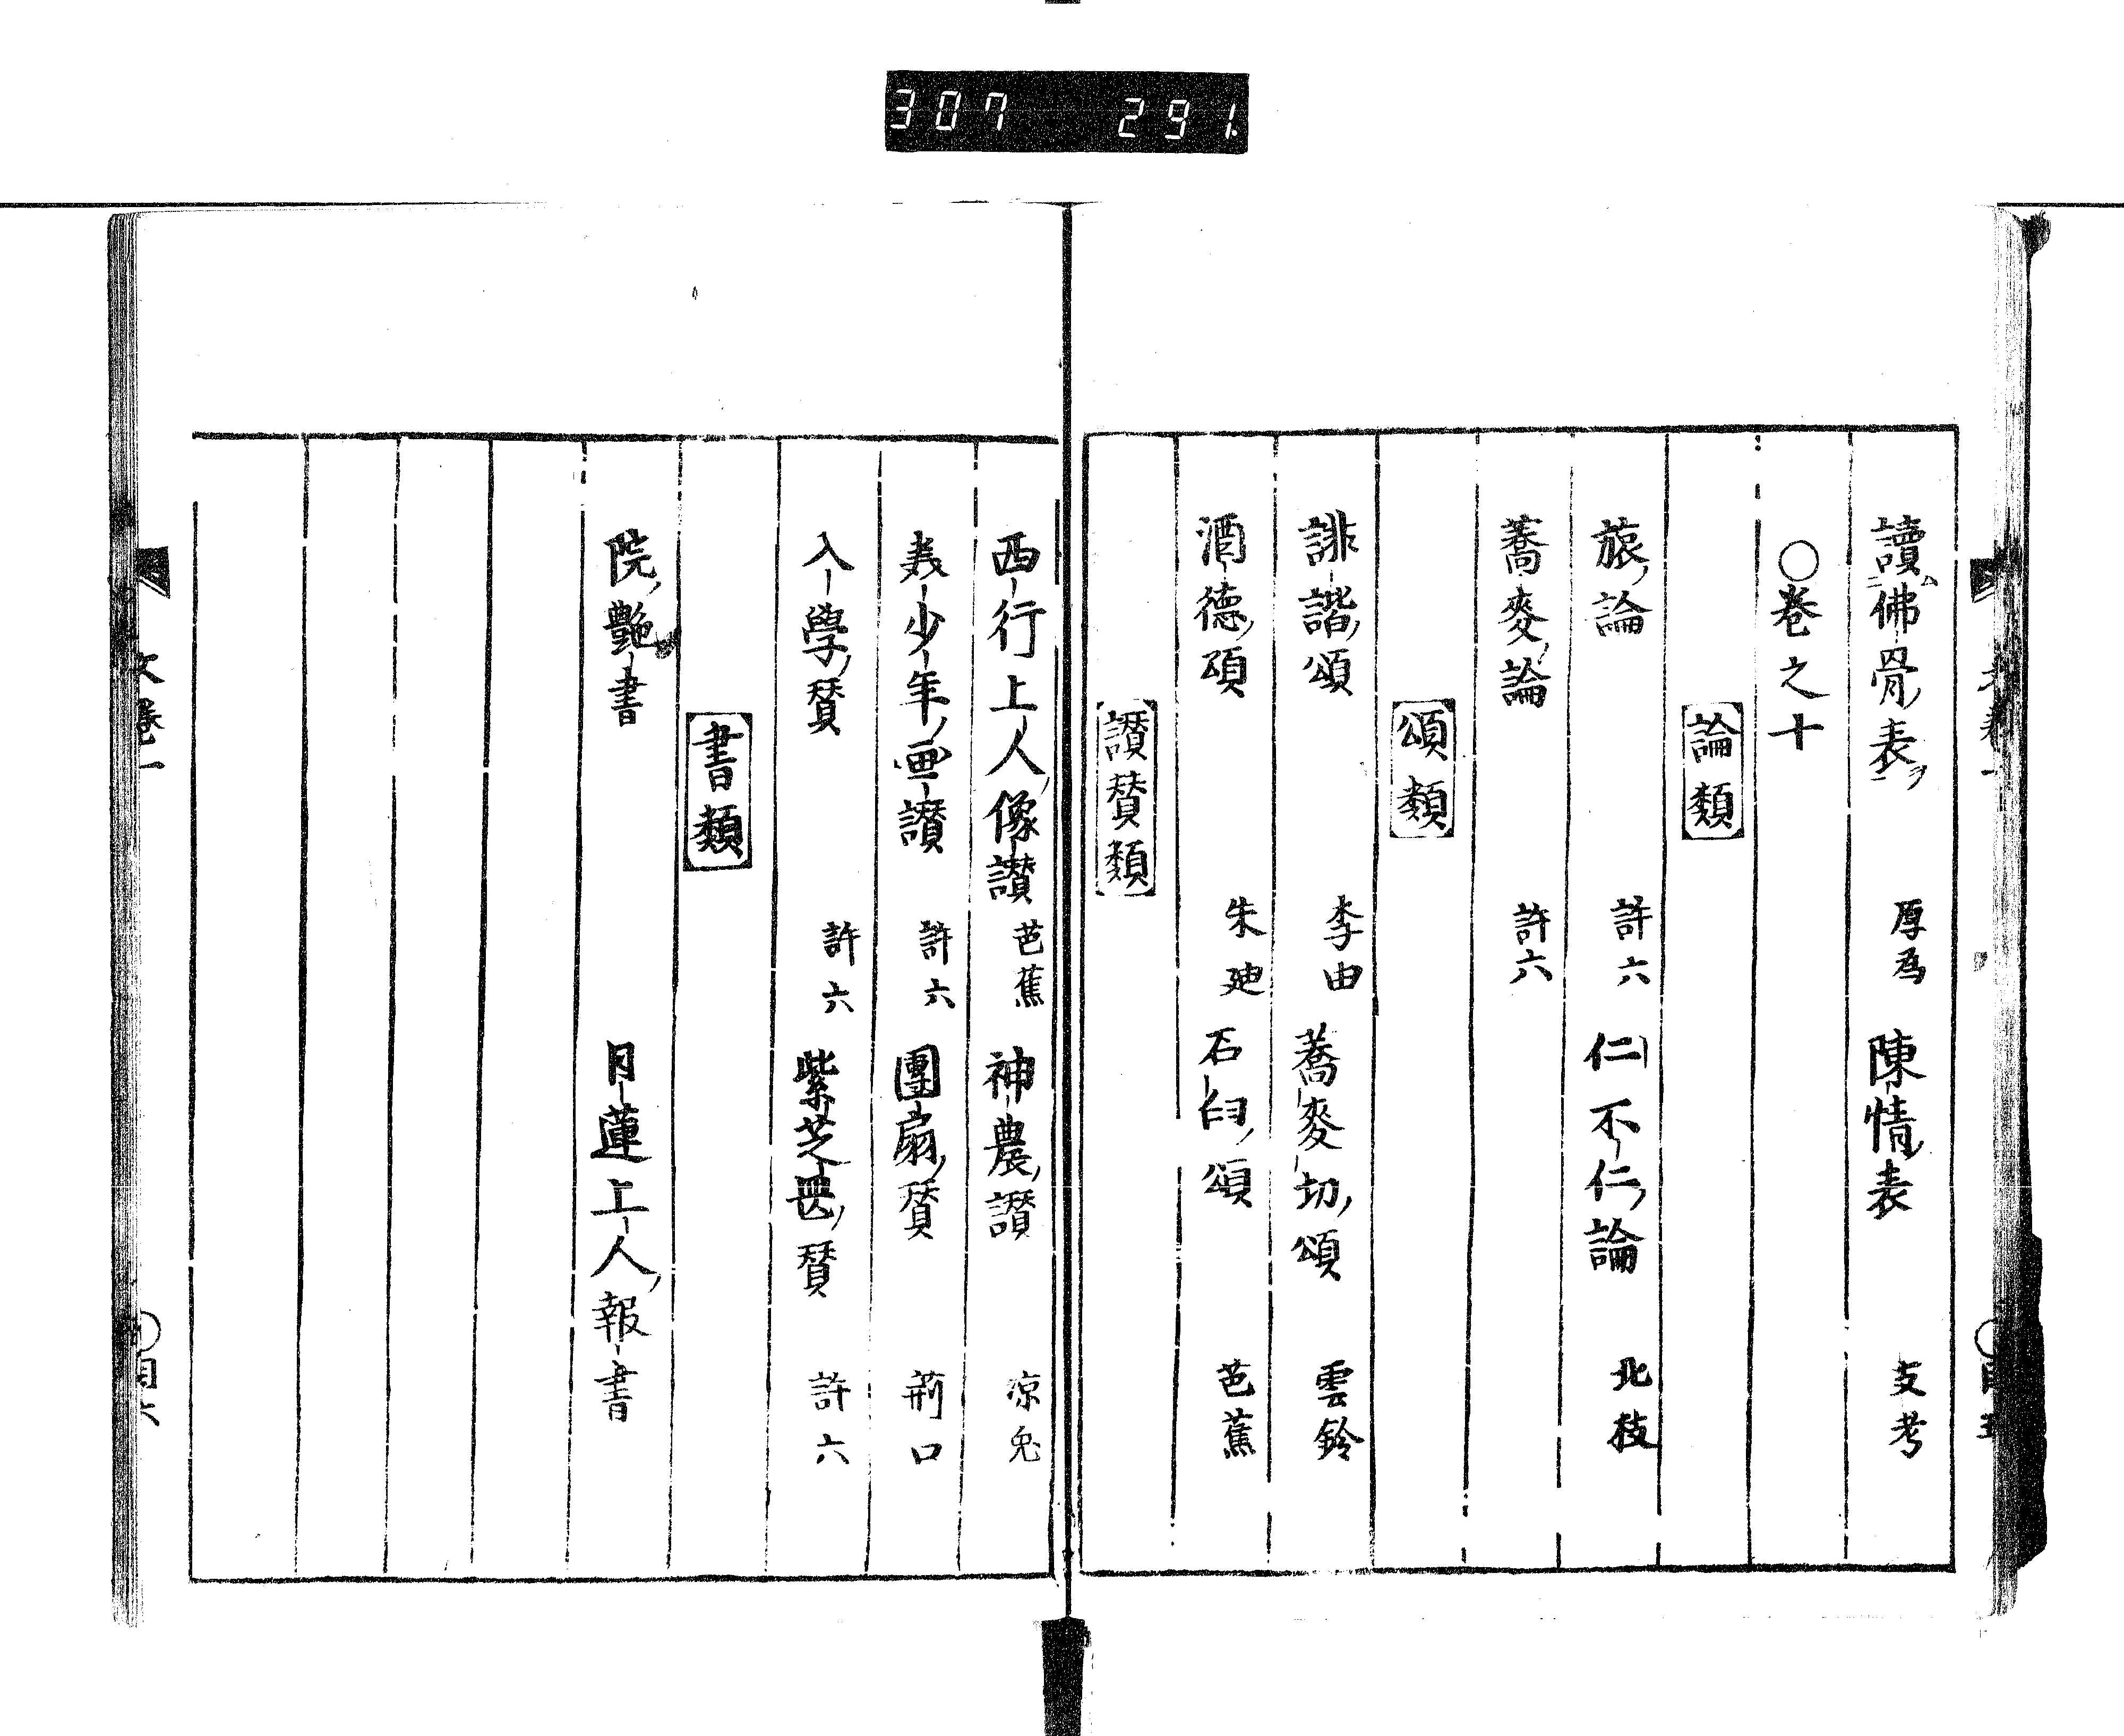 307 291
讀佛骨表 厚為 陳情表 支考
○巻之十
論類
旅論 許六 仁不仁論 北枝
蕎麥論 許六
頌類
誹諧頌 李由 蕎麥切頌 雲鈴
酒德頌 朱廸 石臼頌 芭蕉
讃賛類
西行上人像讃 芭蕉 神農讃 凉兎
美少年画讃 許六 團扇賛 荊口
入學賛 許六 紫芝 賛 許六
書類
院艶書 日蓮上人報書